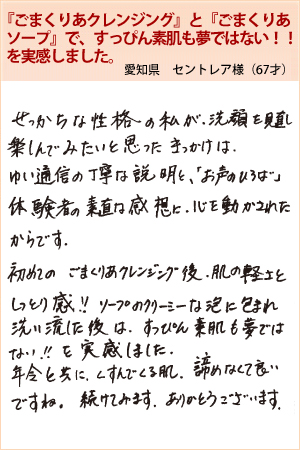 『ごまくりあクレンジング』と『ごまくりあ
ソープ』で、すっぴん素肌も夢ではない！！
を実感しました。
愛知県　セントレア様（67才）
せっかちな性格の私が、洗顔を見直し
楽しんでみたいと思ったきっかけは、
ゆい通信の丁寧な説明と、「お声のひろば」
体験者の素直な感想に、心を動かされた
からです。
初めての ごまくりあクレンジング後、肌の軽さと
しっとり感!! ソープのクリーミーな泡に包まれ
洗い流した後は、すっぴん素肌も夢では
ない!! を実感しました。
年令と共に、くすんでくる肌、諦めなくて良い
ですね。続けてみます。ありがとうございます。